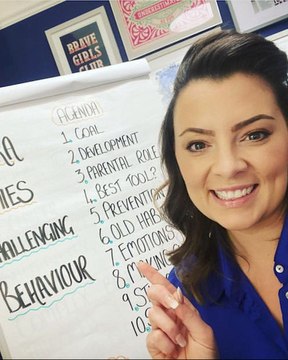 BRAVE
GIRLS
CLUB
UNDERESTIMATE
RA
IES
HALLENGING
BEHAVIOUR
AGENDA
1. GOAL
2. DEVELOPMENT
3. PARENTAL ROLE
4. BEST TOOL?
5. PREVENTI
6. OLD HAB
7. EMOTIONS
8. MAKING
9. ST
10. S